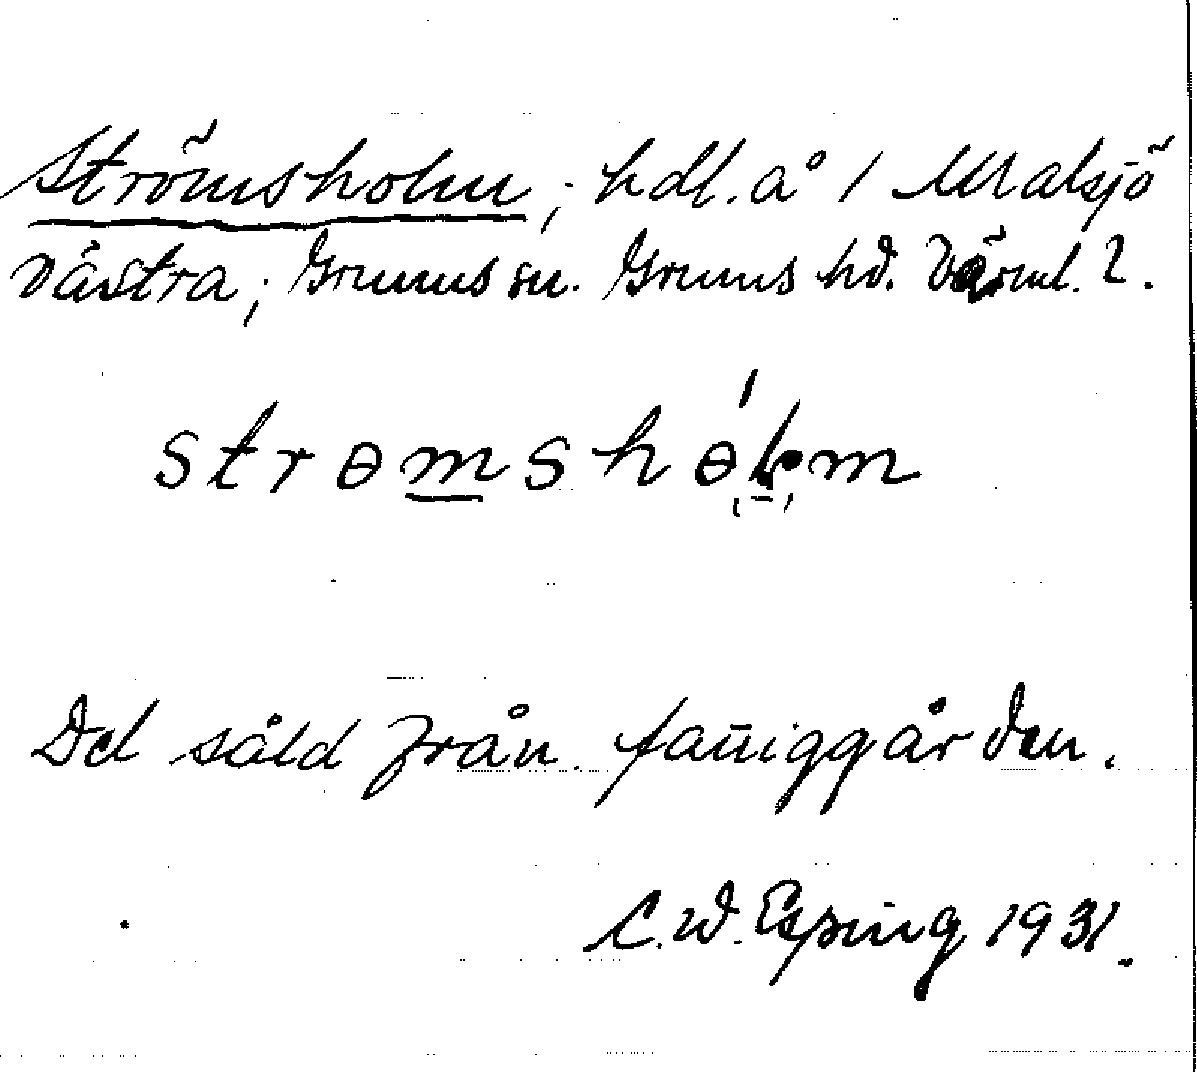 Strömsholm; hdl. å 1 Malsjö
Västra; Grums sn. Grums hd. Värml. l.
strɵmshɵ́lm
Del såld från fañiggården.
C.W. Esping 1931.